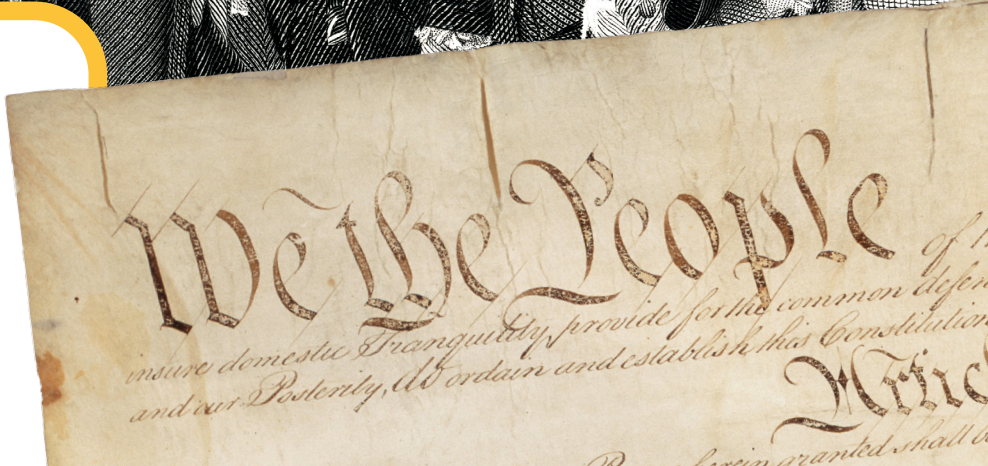 We the People of
insure domestic Tranquility, provide for the common
and our Posterity, do ordain and establish this Constitution
granted shall